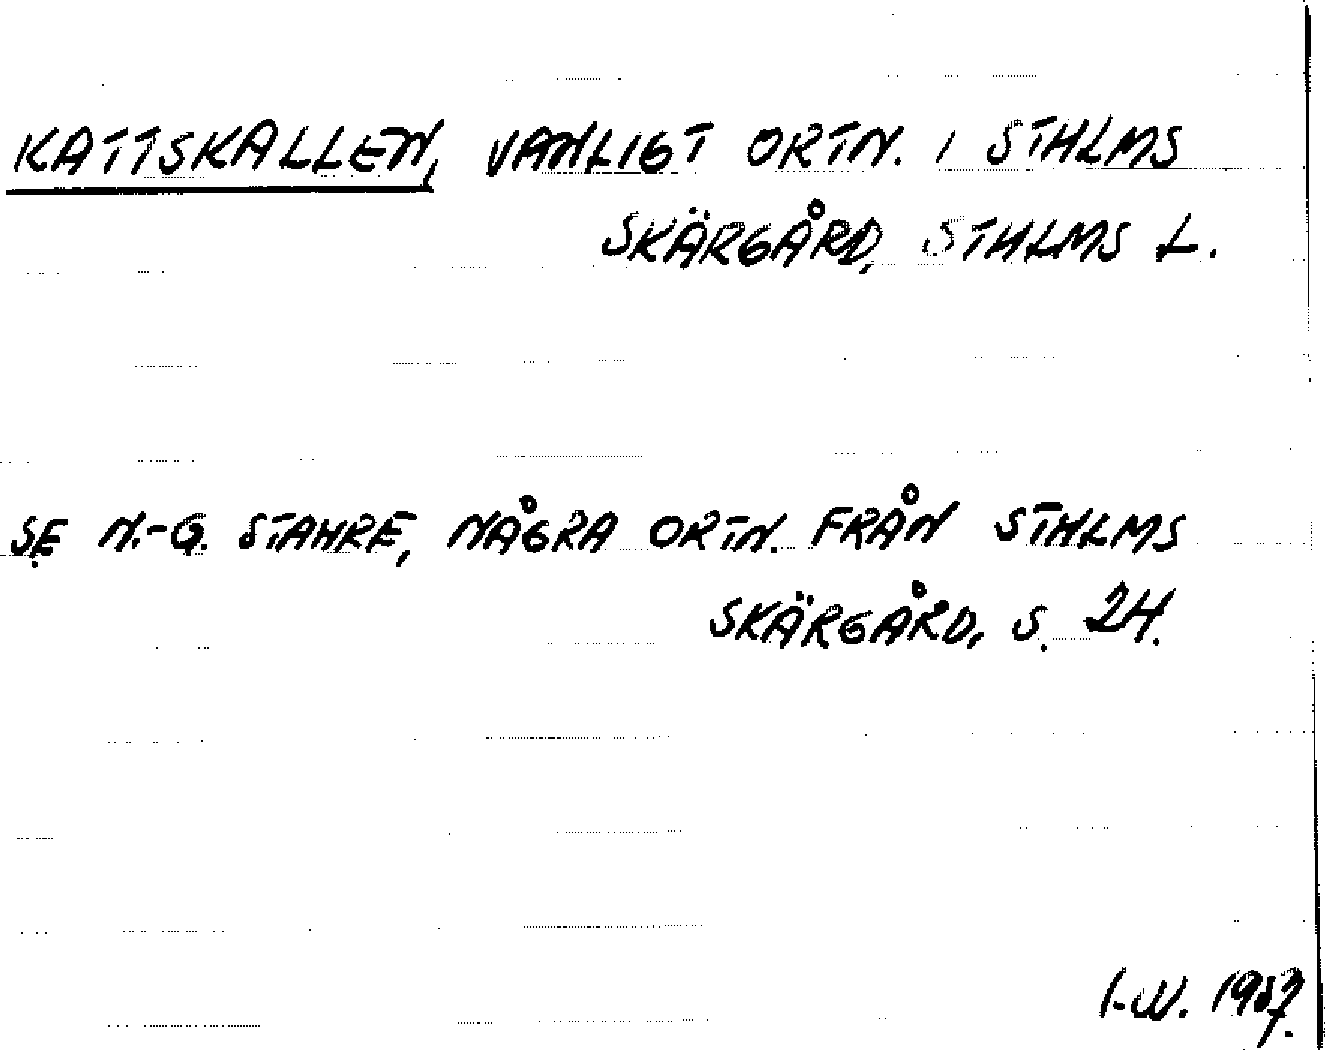 KATTSKALLEN, VANLIGT ORTN. I STHLMS
SKÄRGÅRD, STHLMS L.
SE N.-G. STAHRE, NÅGRA ORTN. FRÅN STHLMS
SKÄRGÅRD, S. 24.
I.W. 1957.